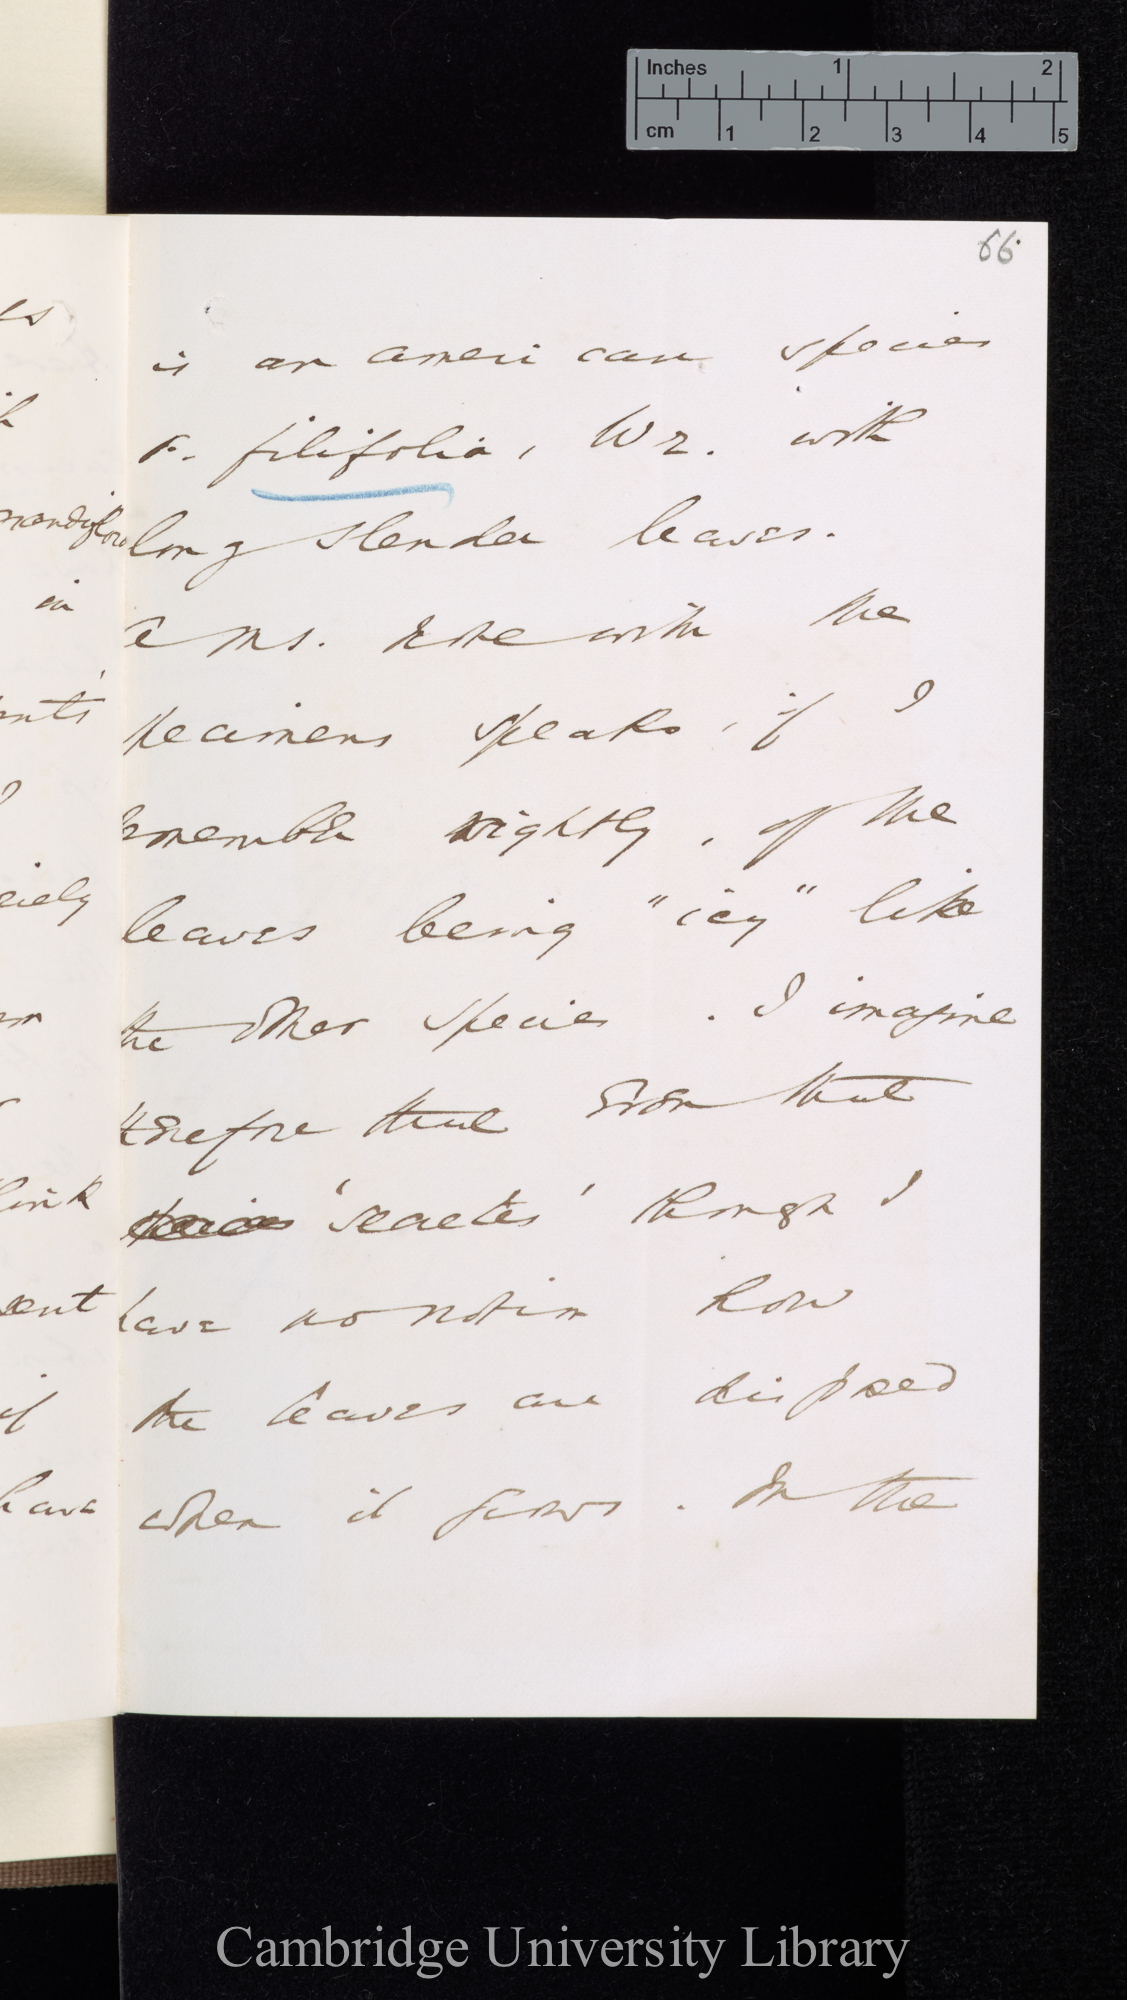 Inches 1 2
cm 1 2 3 4 5
66
is an american species
P. filifolia, Wr. with
long slender leaves.
A ms. note with the
specimens speaks, if I
remember rightly, of the
leaves being "icy" like
the other species. I imagine
therefore that even that
'reacts' though I
have no notion how
the leaves are disposed
when it grows. In the
in
have
Cambridge University Library